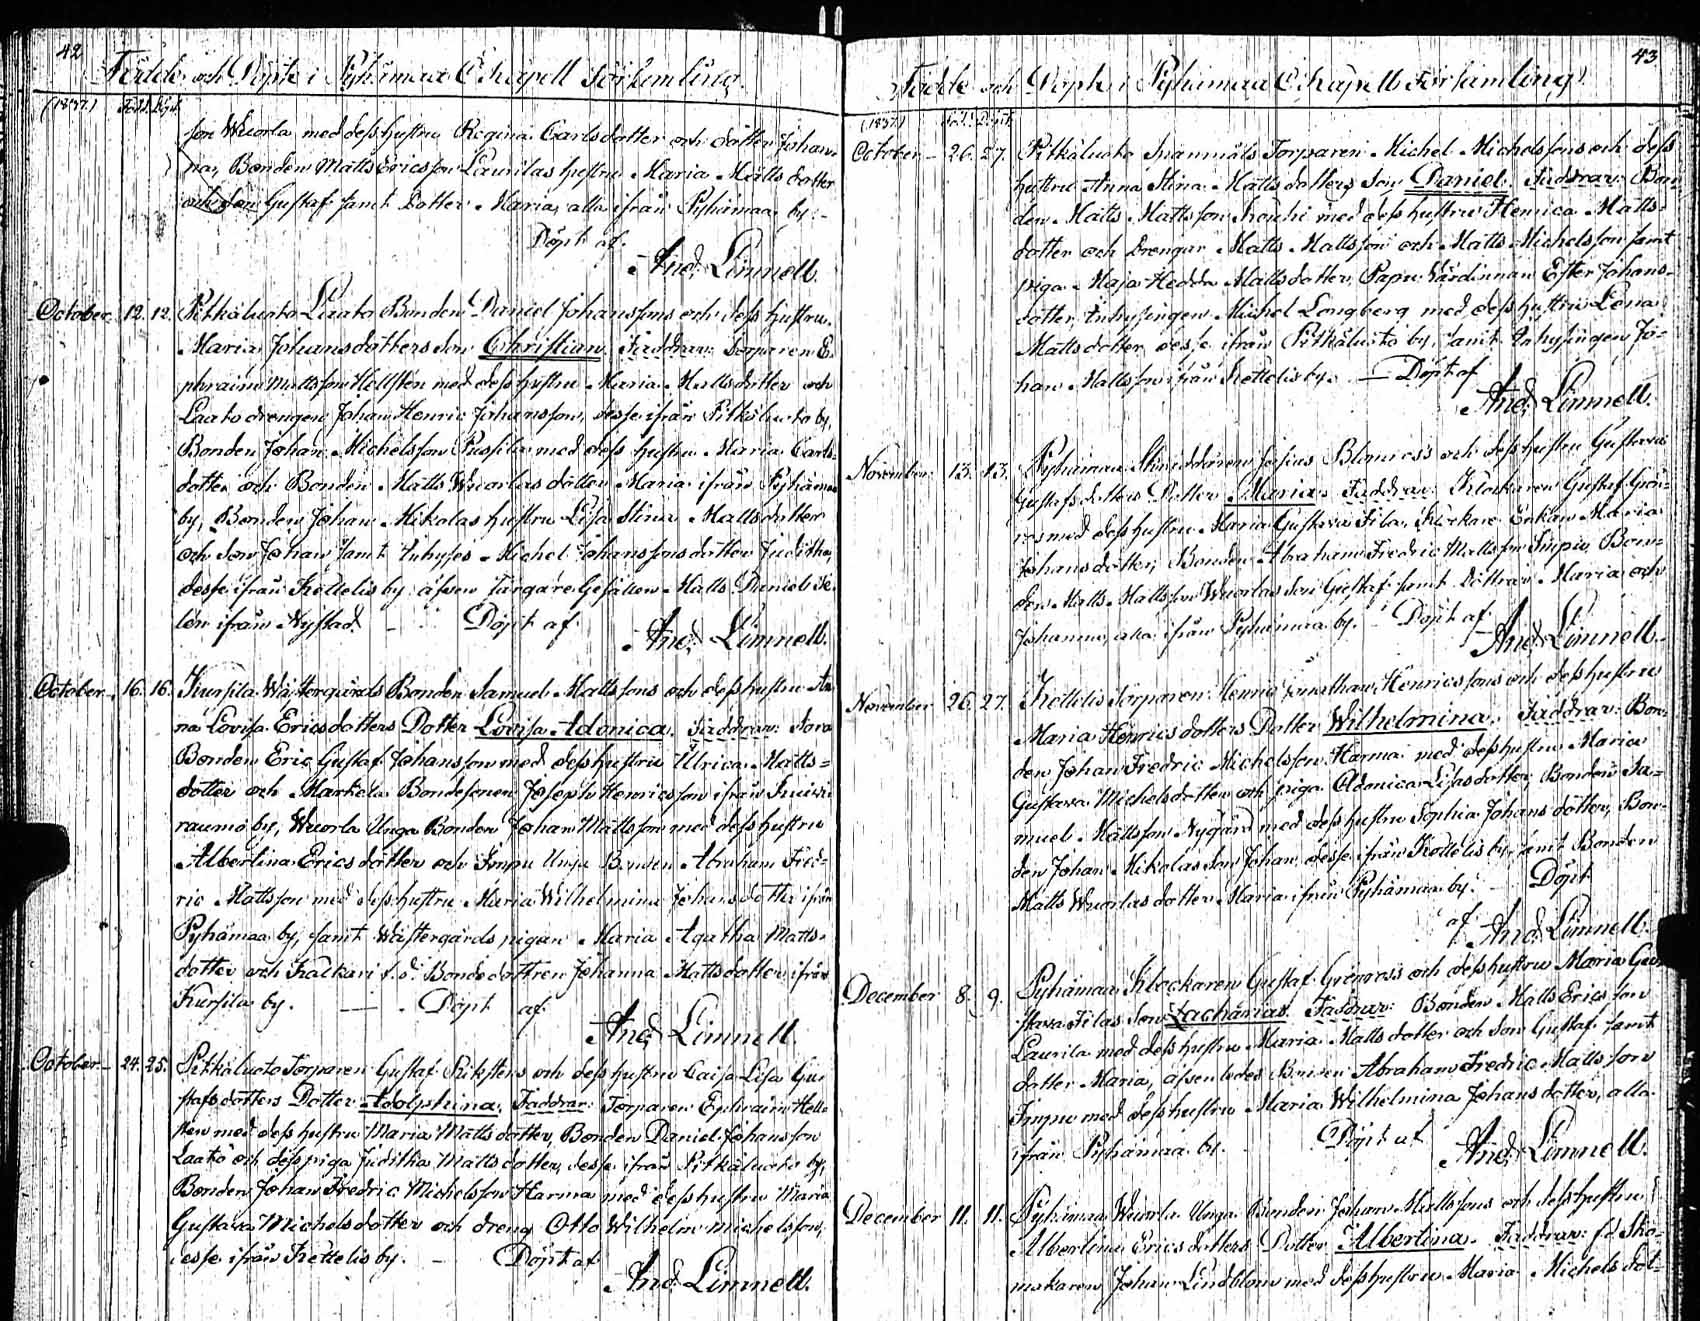 42
Födde och Döpte i Pyhämaa Capell Församling.
(1837.) Född. Döpt.
son Wuorla med dess hustru Regina Carlsdotter och dotter Johan-
na, Bonden Matts Ericsson Laurilas hustru Maria Matts dotter
och son Gustaf samt Dotter Maria, alla ifrån Pyhämaa by. –
Döpt af
And. Limnell.
October 12. 12. Pitkäluoto Laato Bonden Daniel Johanssons och dess hustru
Maria Johansdotters son Christian. Faddrar: Torparen E-
phraim Mattsson Hellsten med dess hustru Maria Mattsdotter och
Laato drengen Johan Henric Johansson, desse ifrån Pitkäluoto by,
Bonden Johan Michelsson Pussila med dess hustru Maria Carls-
dotter och Bonden Matts Wuorlas dotter Maria ifrån Pyhämaa
by, Bonden Johan Mikolas hustru Lisa Stina Mattsdotter
och son Johan samt Inhyses Michel Johanssons dotter Juditha,
desse ifrån Kettelis by äfven Färgare Gesällen Matts Daniel
ifrån Nystad. – Döpt af
And. Limnell.
October 16. 16. Kursila Wästergårds Bonden Samuel Mattssons och dess hustru An-
na Lovisa Ericsdotters Dotter Lovisa Adonica. Faddrar:
Bonden Eric Gustaf Johansson med dess hustru Ulrica Matts-
dotter och Markula Bondesonen Joseph Henricsson ifrån
raumo by, Wuorla Unga Bonden Johan Mattsson med dess hustru
Albertina Ericsdotter och Impu Unga Bonden Abraham Fred-
ric Mattsson med dess hustru Maria Wilhelmina Johansdotter ifrån
Pyhämaa by, samt Wästergårds pigan Maria Agatha Matts-
dotter och Kalkari f.d. Bondedottren Johanna Mattsdotter ifrån
Kursila by. — Döpt af
And. Limnell.
October 24. 25. Pitkäluoto Torparen Gustaf Rikstens och dess hustru Caisa Lisa Gu-
stafsdotters Dotter Adolphina. Faddrar: Torparen Ephraim Hell-
sten med dess hustru Maria Matts dotter, Bonden Daniel Johansson
Laato och dess piga Juditha Matts dotter, desse ifrån Pitkäluoto by,
Bonden Johan Fredric Michelsson Harma med dess hustru Maria
Gustava Michelsdotter och dreng Otto Wilhelm Michelsson,
desse ifrån Kettelis by. – Döpt af
And. Limnell.
43
Födde och Döpte i Pyhämaa Capells Församling.
(1837.) Född. Döpt.
October 26. 27. Pitkäluoto Torparen Michel Michelssons och dess
hustru Anna Stina Mattsdotters son Daniel. Faddrar: Bon-
den Matts Mattsson Kouhi med dess hustru Henrica Matts-
dotter och Drengar Matts Mattsson och Matts Michelsson samt
piga Maja Hedda Mattsdotter, Papu Wärdinnan Ester Johans-
dotter, Inhysingen Michel Longberg med dess hustru Lena
Mattsdotter desse ifrån Pitkäluoto by, samt Inhysingen Jo-
han Mattsson ifrån Kettelis by. — Döpt af
And. Limnell.
November 13. 13. Pyhämaa Skräddaren Josius Blomros's och dess hustru Gustava
Gustafsdotters Dotter Maria. Faddrar: Klockaren Gustaf Grön-
ros med dess hustru Maria Gustava Fila, Klockare Enkan Maria
Johansdotter, Bonden Abraham Fredric Mattsson Impu, Bon-
den Matts Mattsson Wuorlas son Gustaf samt döttrar Maria och
Johanna, alla ifrån Pyhämaa by. – Döpt af
And. Limnell.
November 26. 27. Kettelis Torparen Henric Jonathan Henricssons och dess hustru
Maria Henricsdotters Dotter Wilhelmina. Faddrar: Bon-
den Johan Fredric Michelsson Harma med dess hustru Maria
Gustava Michelsdotter och piga Adonica Lisasdotter, Bonden Sa-
muel Mattsson Nygård med dess hustru Sophia Johans dotter, Bon-
den Johan Mikolas son Johan, desse ifrån Kettelis by, samt Bonden
Matts Wuorlas dotter Maria ifrån Pyhämaa by. – Döpt
af And. Limnell.
December 8. 9. Pyhämaa Klockaren Gustaf Grönros's och dess hustru Maria Gu-
stava Filas son Zacharias. Faddrar: Bonden Matts Ericsson
Laurila med dess hustru Maria Matts dotter och son Gustaf samt
dotter Maria, äfvenledes Bonden Abraham Fredric Mattsson
Impu med dess hustru Maria Wilhelmina Johans dotter, alla
ifrån Pyhämaa by. Döpt af
And. Limnell.
December 11. 11. Pyhämaa Wuorla Unga Bonden Johan Mattssons och dess hustru
Albertina Ericsdotters Dotter Albertina. Faddrar: f.d. Sko-
makaren Johan Lindblom med dess hustru Maria Michels dot-